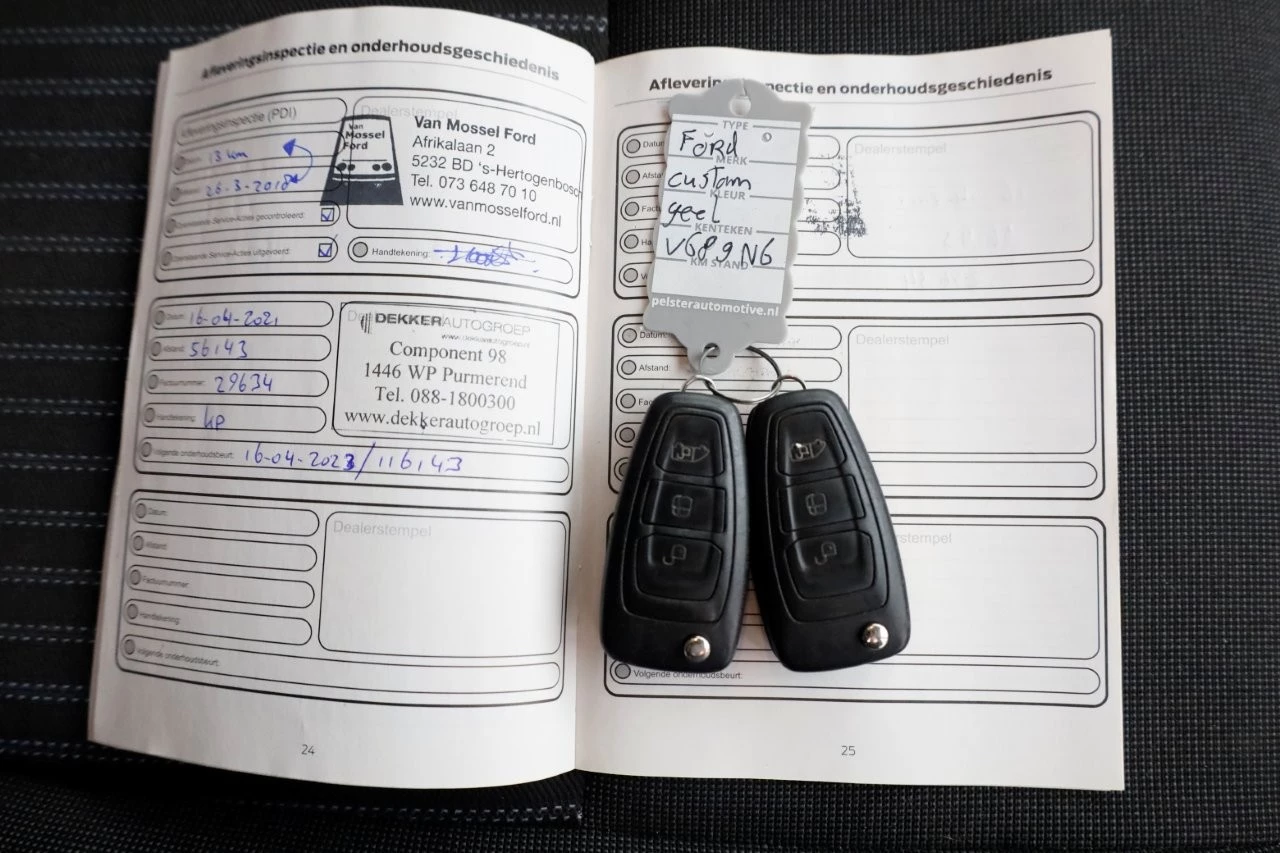 Afleveringsinspectie en onderhoudsgeschiedenis
Afleveringsinspectie (PDI)
13 km
26-3-2018
Service-Acties gecontroleerd:
Service-Acties uitgevoerd:
Dealerstempel
Van Mossel Ford
Van Mossel Ford
Afrikalaan 2
5232 BD 's-Hertogenbosch
Tel. 073 648 70 10
www.vanmosselford.nl
Handtekening:
Datum: 16-04-2021
Afstand: 56143
Factuurnummer: 29634
Handtekening: KP
Volgende onderhoudsbeurt: 16-04-2023/116143
DEKKERAUTOGROEP
Component 98
1446 WP Purmerend
Tel. 088-1800300
www.dekkerautogroep.nl
Datum:
Afstand:
Factuurnummer:
Handtekening:
Volgende onderhoudsbeurt:
Dealerstempel
24
Aflevering nspectie en onderhoudsgeschiedenis
Dealerstempel
TYPE
Ford
MERK
custom
KLEUR
geel
KENTEKEN
VG89NG
KM STAND
pelsterautomotive.nl
Datum:
Afstand:
Dealerstempel
Volgende onderhoudsbeurt:
25